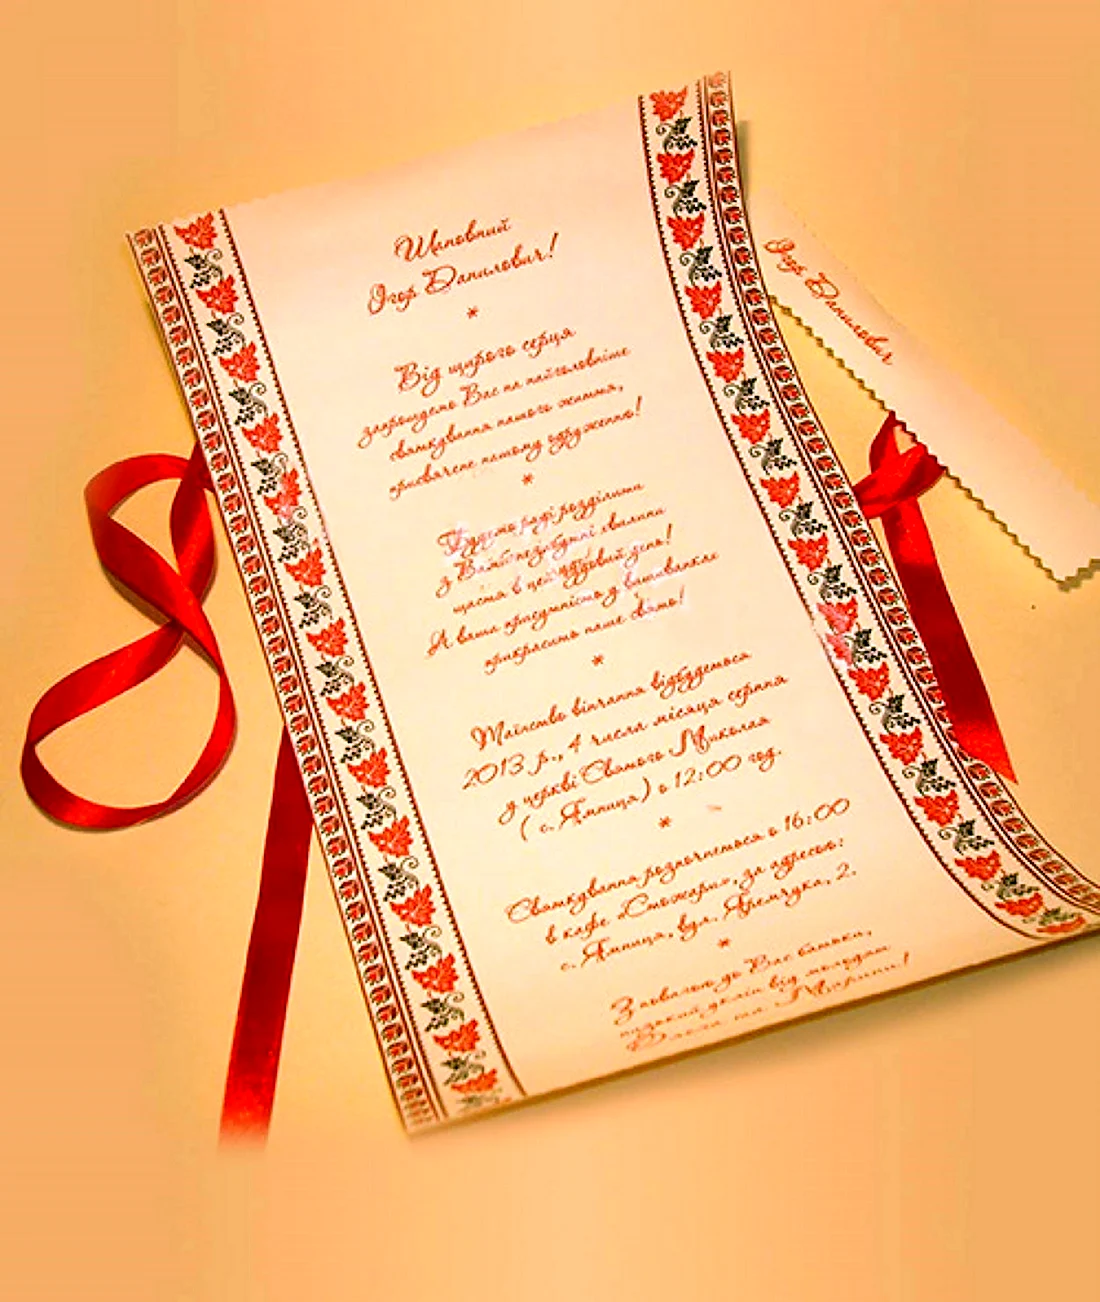 Шановний
Ігор Данилович!
*
Від щирого серця
запрошуємо Вас на найголовніше
святкування нашого життя,
присвячене нашому одруженню!
*
Будемо раді розділити
з Вами незабутні хвилини
щастя в цей чудовий день!
А ваша присутність у вишиванке
прикрасить наше свято!
*
Таїнство вінчання відбудеться
2013 р., 4 числа місяця серпня
у церкві Святого Миколая
(с. Ямниця) о 12:00 год.
*
Святкування розпочнеться о 16:00
в кафе «Стожари», за адресою:
с. Ямниця, вул. Яремчука, 2.
*
З повагою до Вас батьки,
низький уклін від молодят
та Марини!
Ігор Данилович